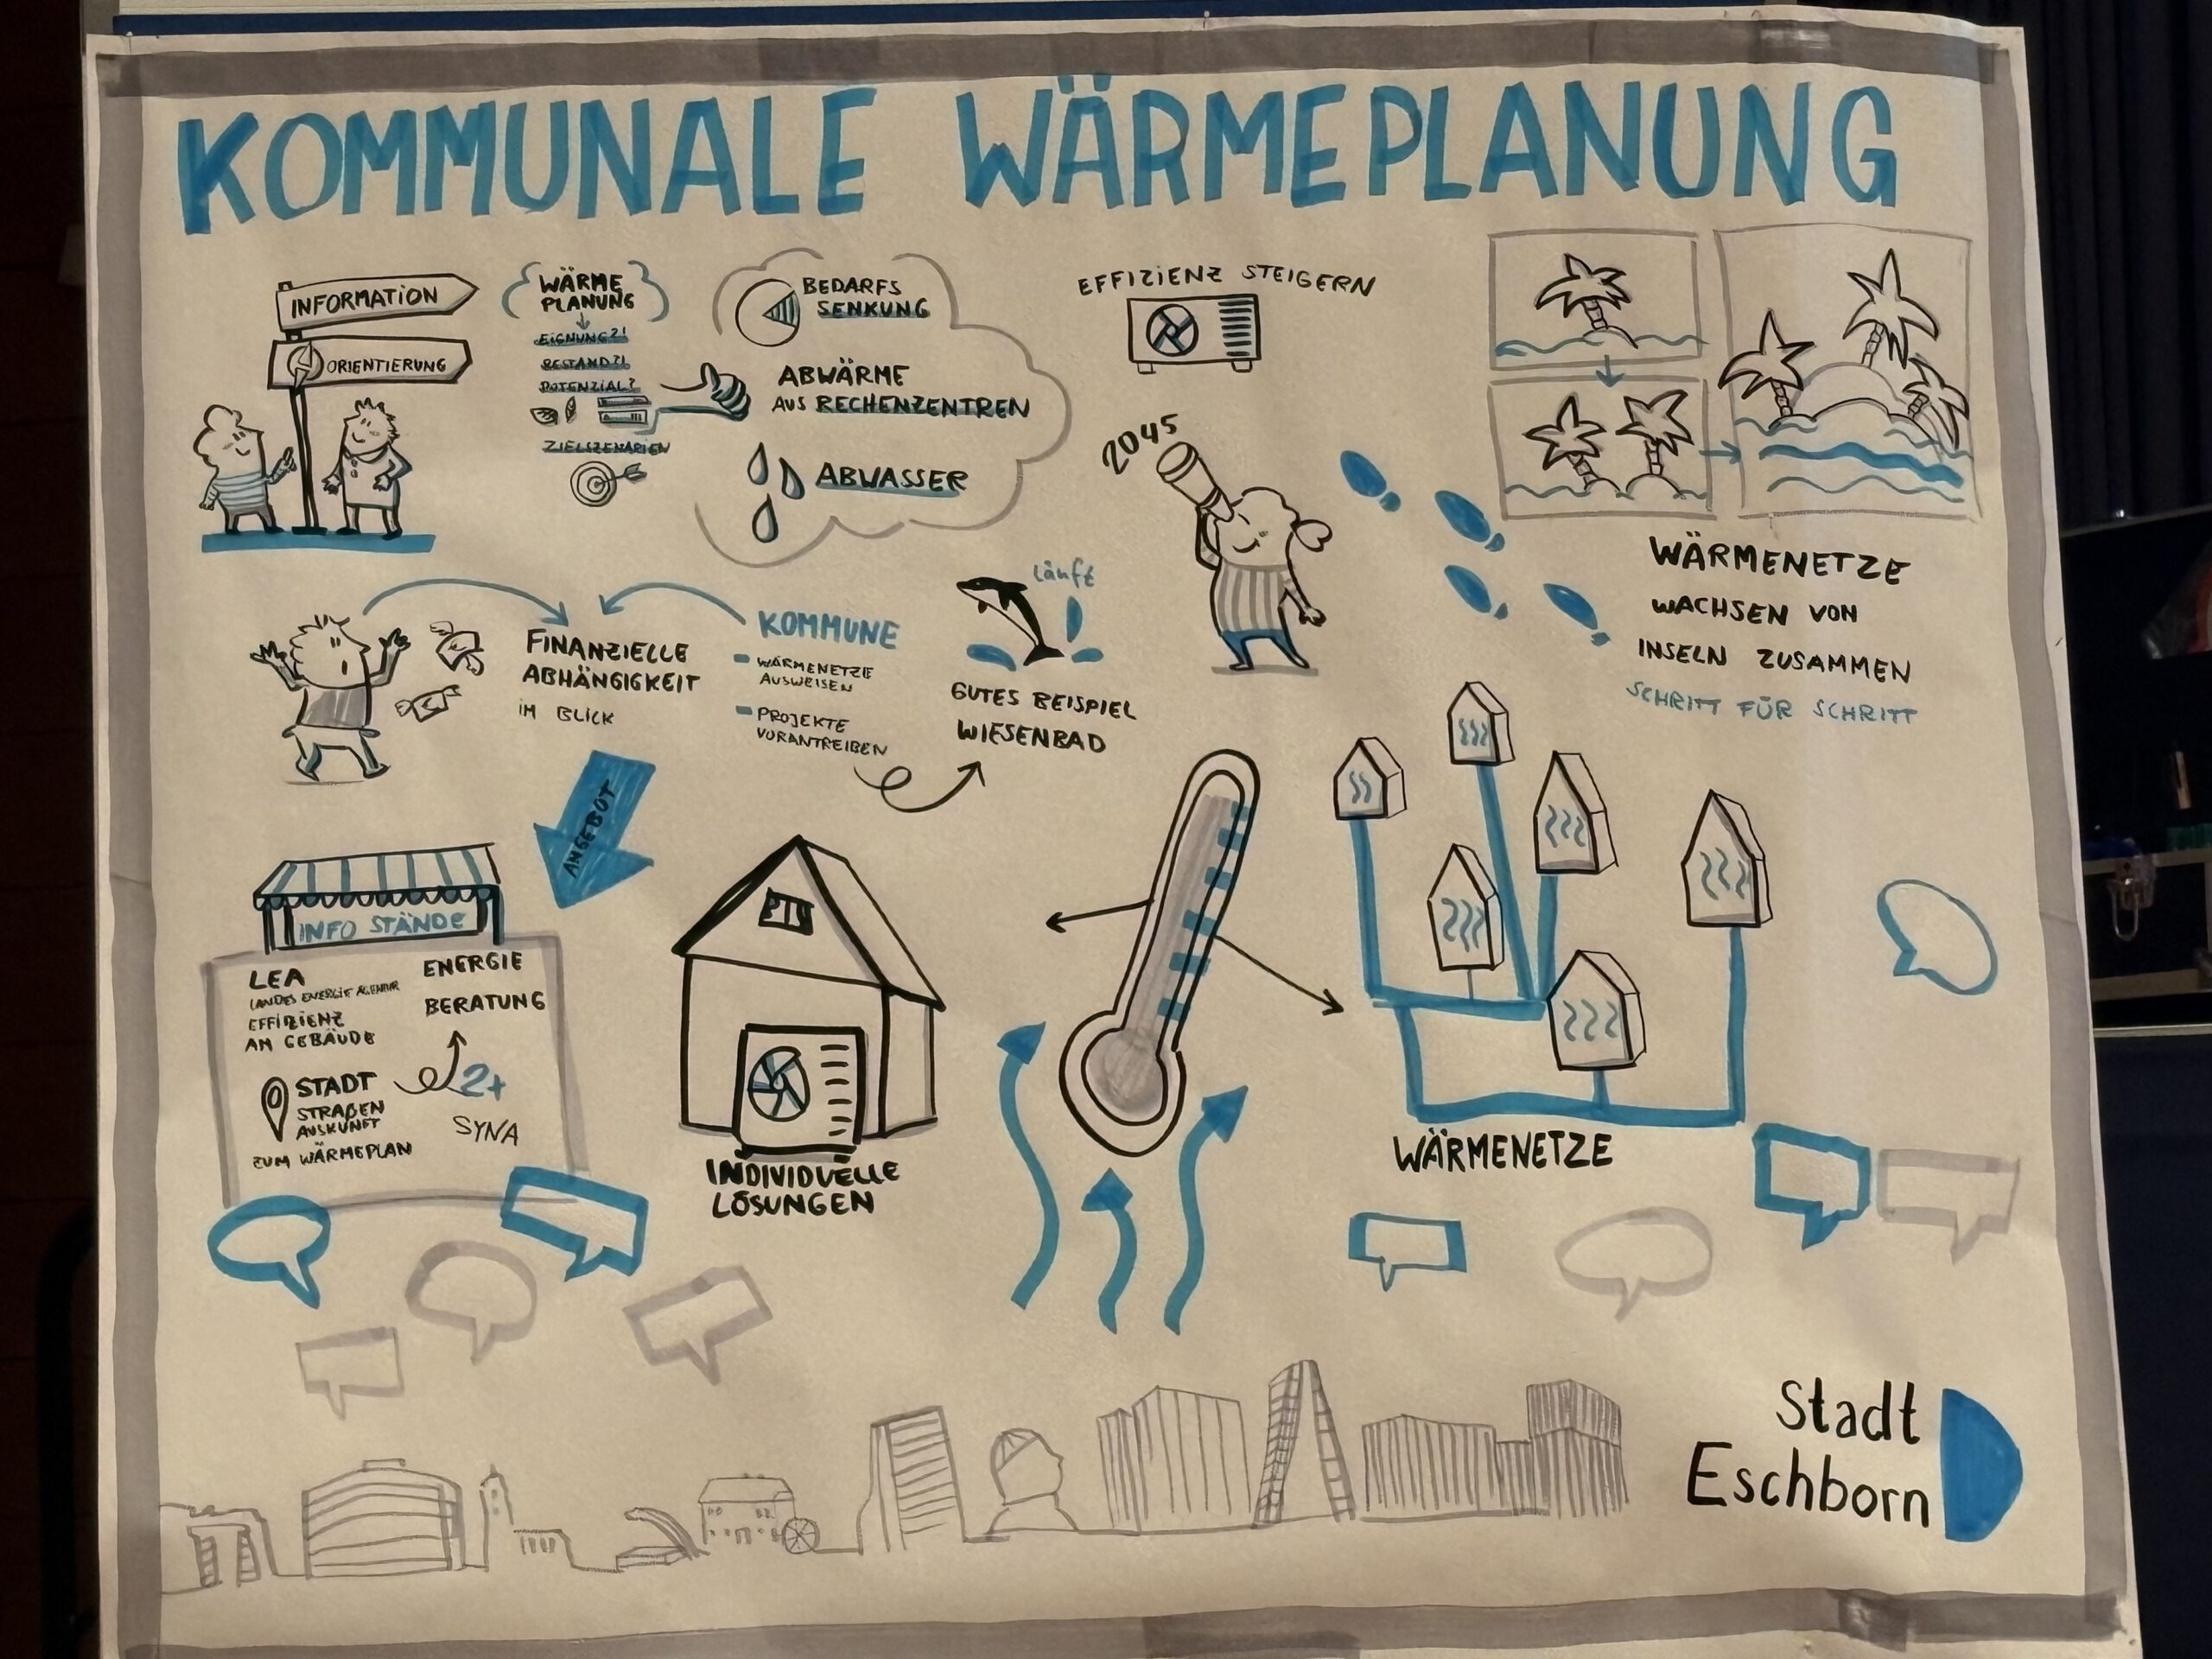 KOMMUNALE WÄRMEPLANUNG
INFORMATION
ORIENTIERUNG
WÄRME
PLANUNG
EIGNUNG?!
BESTAND?!
POTENZIAL?
ZIELSZENARIEN
BEDARFS
SENKUNG
ABWÄRME
AUS RECHENZENTREN
ABWASSER
EFFIZIENZ STEIGERN
2045
WÄRMENETZE
WACHSEN VON
INSELN ZUSAMMEN
SCHRITT FÜR SCHRITT
FINANZIELLE
ABHÄNGIGKEIT
IM BLICK
KOMMUNE
WÄRMENETZE
AUSWEISEN
PROJEKTE
VORANTREIBEN
läuft
GUTES BEISPIEL
WIESENBAD
ANGEBOT
INFO STÄNDE
LEA
LANDES ENERGIE AGENTUR
EFFIZIENZ
AM GEBÄUDE
STADT
STRAßEN
AUSKUNFT
ZUM WÄRMEPLAN
ENERGIE
BERATUNG
2+
SYNA
INDIVIDUELLE
LÖSUNGEN
WÄRMENETZE
Stadt
Eschborn